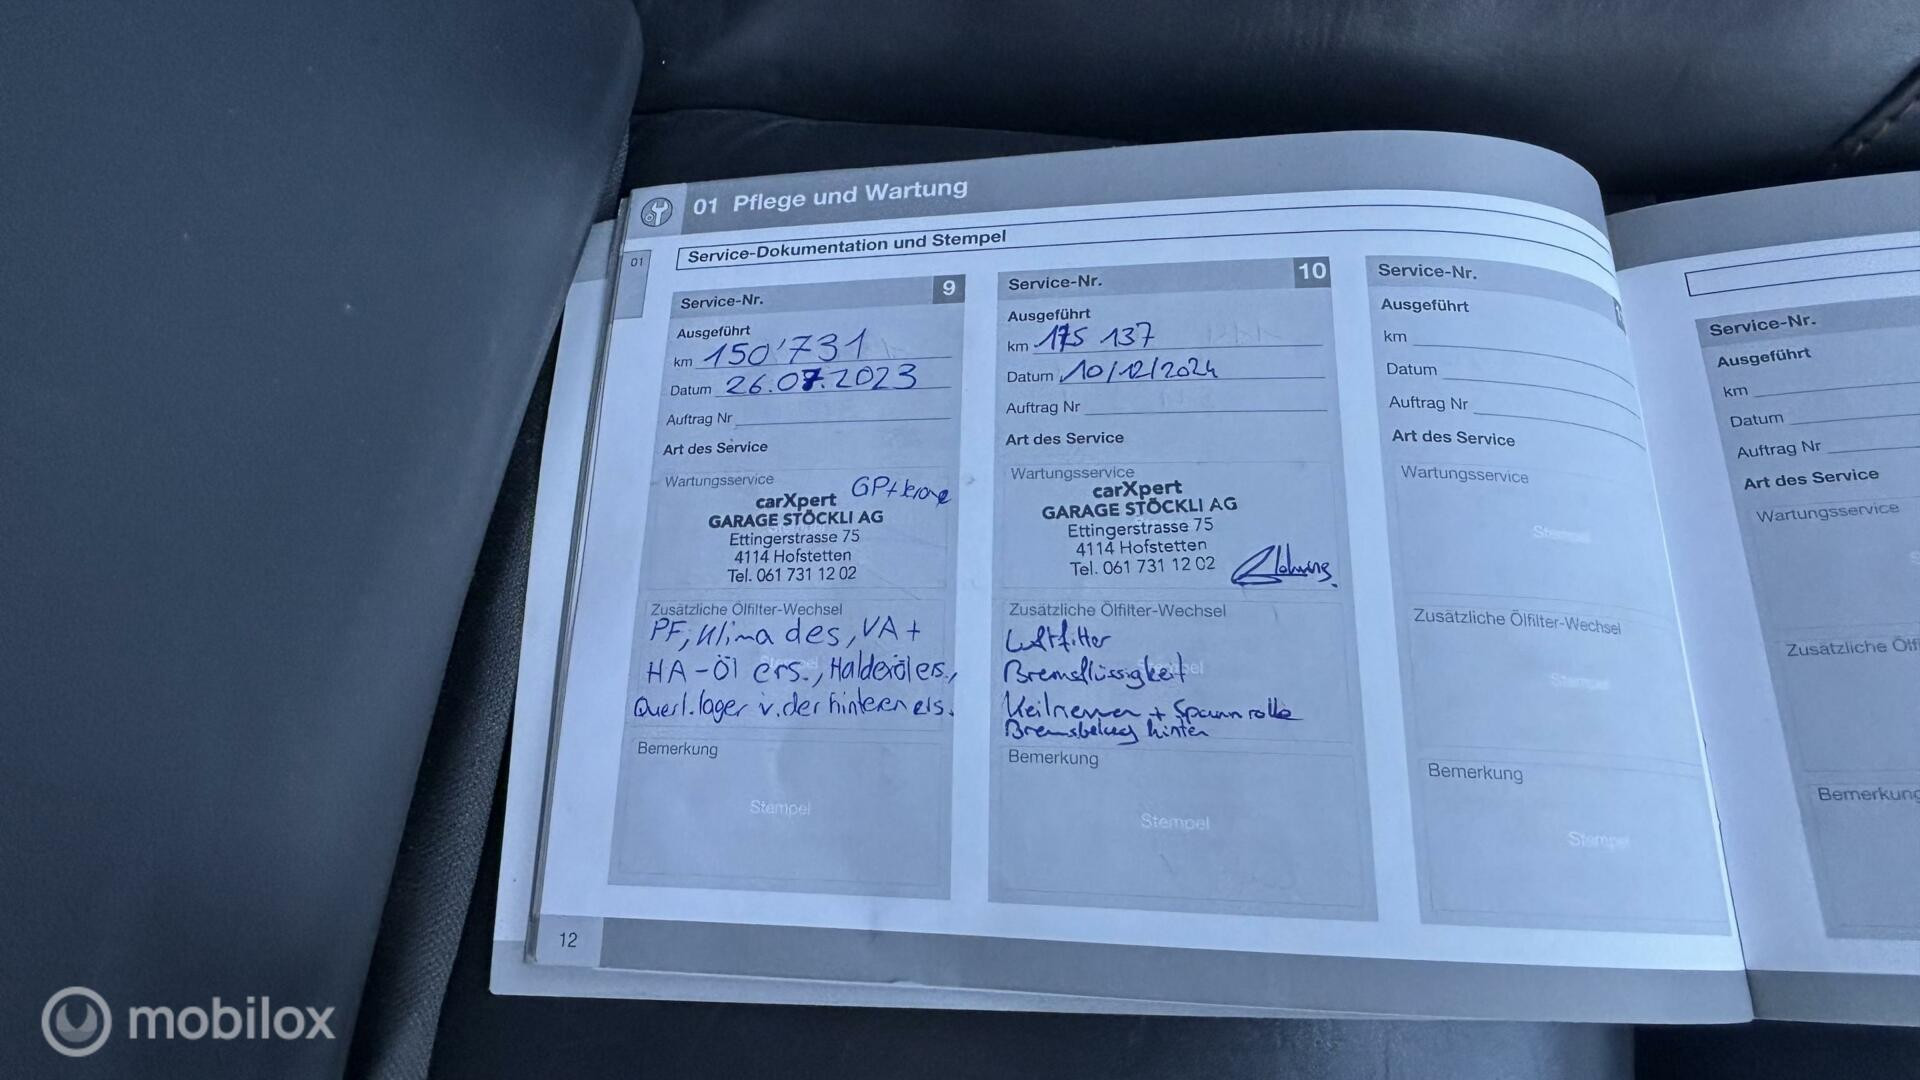 01 Pflege und Wartung
01
Service-Dokumentation und Stempel
Service-Nr. 9
Ausgeführt
km 150'731
Datum 26.07.2023
Auftrag Nr
Art des Service
Wartungsservice
carXpert
GARAGE STÖCKLI AG
Ettingerstrasse 75
4114 Hofstetten
Tel. 061 731 12 02
Zusätzliche Ölfilter-Wechsel
PF, Klima des, VA +
HA-Öl ers., Halderöl ers.,
Querl.lager v. der hinteren ers.
Bemerkung
Stempel
Service-Nr. 10
Ausgeführt
km 175 137
Datum 10/12/2024
Auftrag Nr
Art des Service
Wartungsservice
carXpert
GARAGE STÖCKLI AG
Ettingerstrasse 75
4114 Hofstetten
Tel. 061 731 12 02
Zusätzliche Ölfilter-Wechsel
Luftfilter
Bremsflüssigkeit
Keilriemen + Spannrolle
Bremsbelag hinten
Bemerkung
Stempel
Service-Nr.
Ausgeführt
km
Datum
Auftrag Nr
Art des Service
Wartungsservice
Stempel
Zusätzliche Ölfilter-Wechsel
Stempel
Bemerkung
Stempel
Service-Nr.
Ausgeführt
km
Datum
Auftrag Nr
Art des Service
Wartungsservice
Zusätzliche Ölfi
Bemerkung
12
mobilox